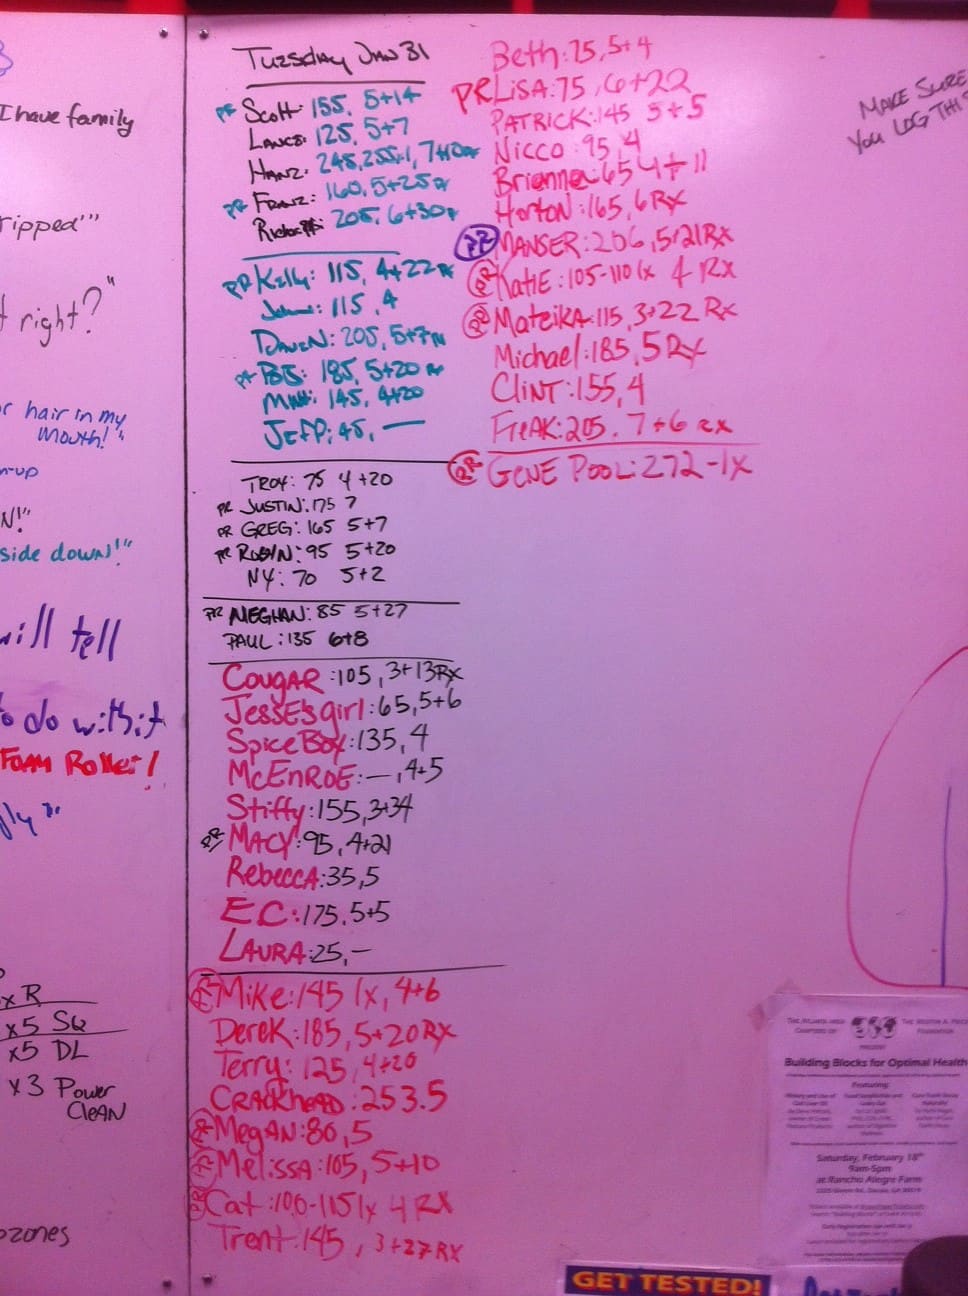 I have family
ripped'"
right?"
hair in my
mouth!"
side down!"
will tell
to do with it
Foam Roller!
x R
x5 SQ
x5 DL
x3 Power
Clean
Tuesday Jan 31
PR Scott: 155, 5+14
Lance: 125, 5+7
Hanz: 245, 255x1, 7+10 Rx
PR Franz: 160, 5+25 Rx
205, 6+30
PR Kelly: 115, 4+22 Rx
115, 4
205, 5+7 Rx
PR 185, 5+20 Rx
Matt: 145, 4+20
Jeff: 45, —
Troy: 75 4+20
PR Justin: 175 7
PR Greg: 165 5+7
PR Robyn: 95 5+20
NY: 70 5+2
PR Meghan: 85 5+27
Paul: 135 6+8
Cougar: 105, 3+13 Rx
Jesse's girl: 65, 5+6
Spice Box: 135, 4
McEnroe: —, 4+5
Stiffy: 155, 3+34
PR Macy: 95, 4+21
Rebecca: 35, 5
E.C.: 175, 5+5
Laura: 25, —
PR Mike: 145 1x, 4+6
Derek: 185, 5+20 Rx
Terry: 125, 4+20
Crackhead: 253.5
PR Megan: 80, 5
PR Melissa: 105, 5+10
PR Cat: 100-115 1x 4 Rx
Trent: 145, 3+27 Rx
Beth: 75, 5+4
PR Lisa: 75, 6+22
Patrick: 145 5+5
Nicco: 95, 4
Brienne: 65 4+11
Horton: 165, 6 Rx
PR Manser: 206, 5+21 Rx
PR Katie: 105-110 1x 4 Rx
PR Mateika: 115, 3+22 Rx
Michael: 185, 5 Rx
Clint: 155, 4
Freak: 205, 7+6 Rx
PR Gene Pool: 272-1x
Make sure
you log this
Building Blocks for Optimal Health
Featuring:
Saturday, February 18th
9am-5pm
at Rancho Alegre Farm
GET TESTED!